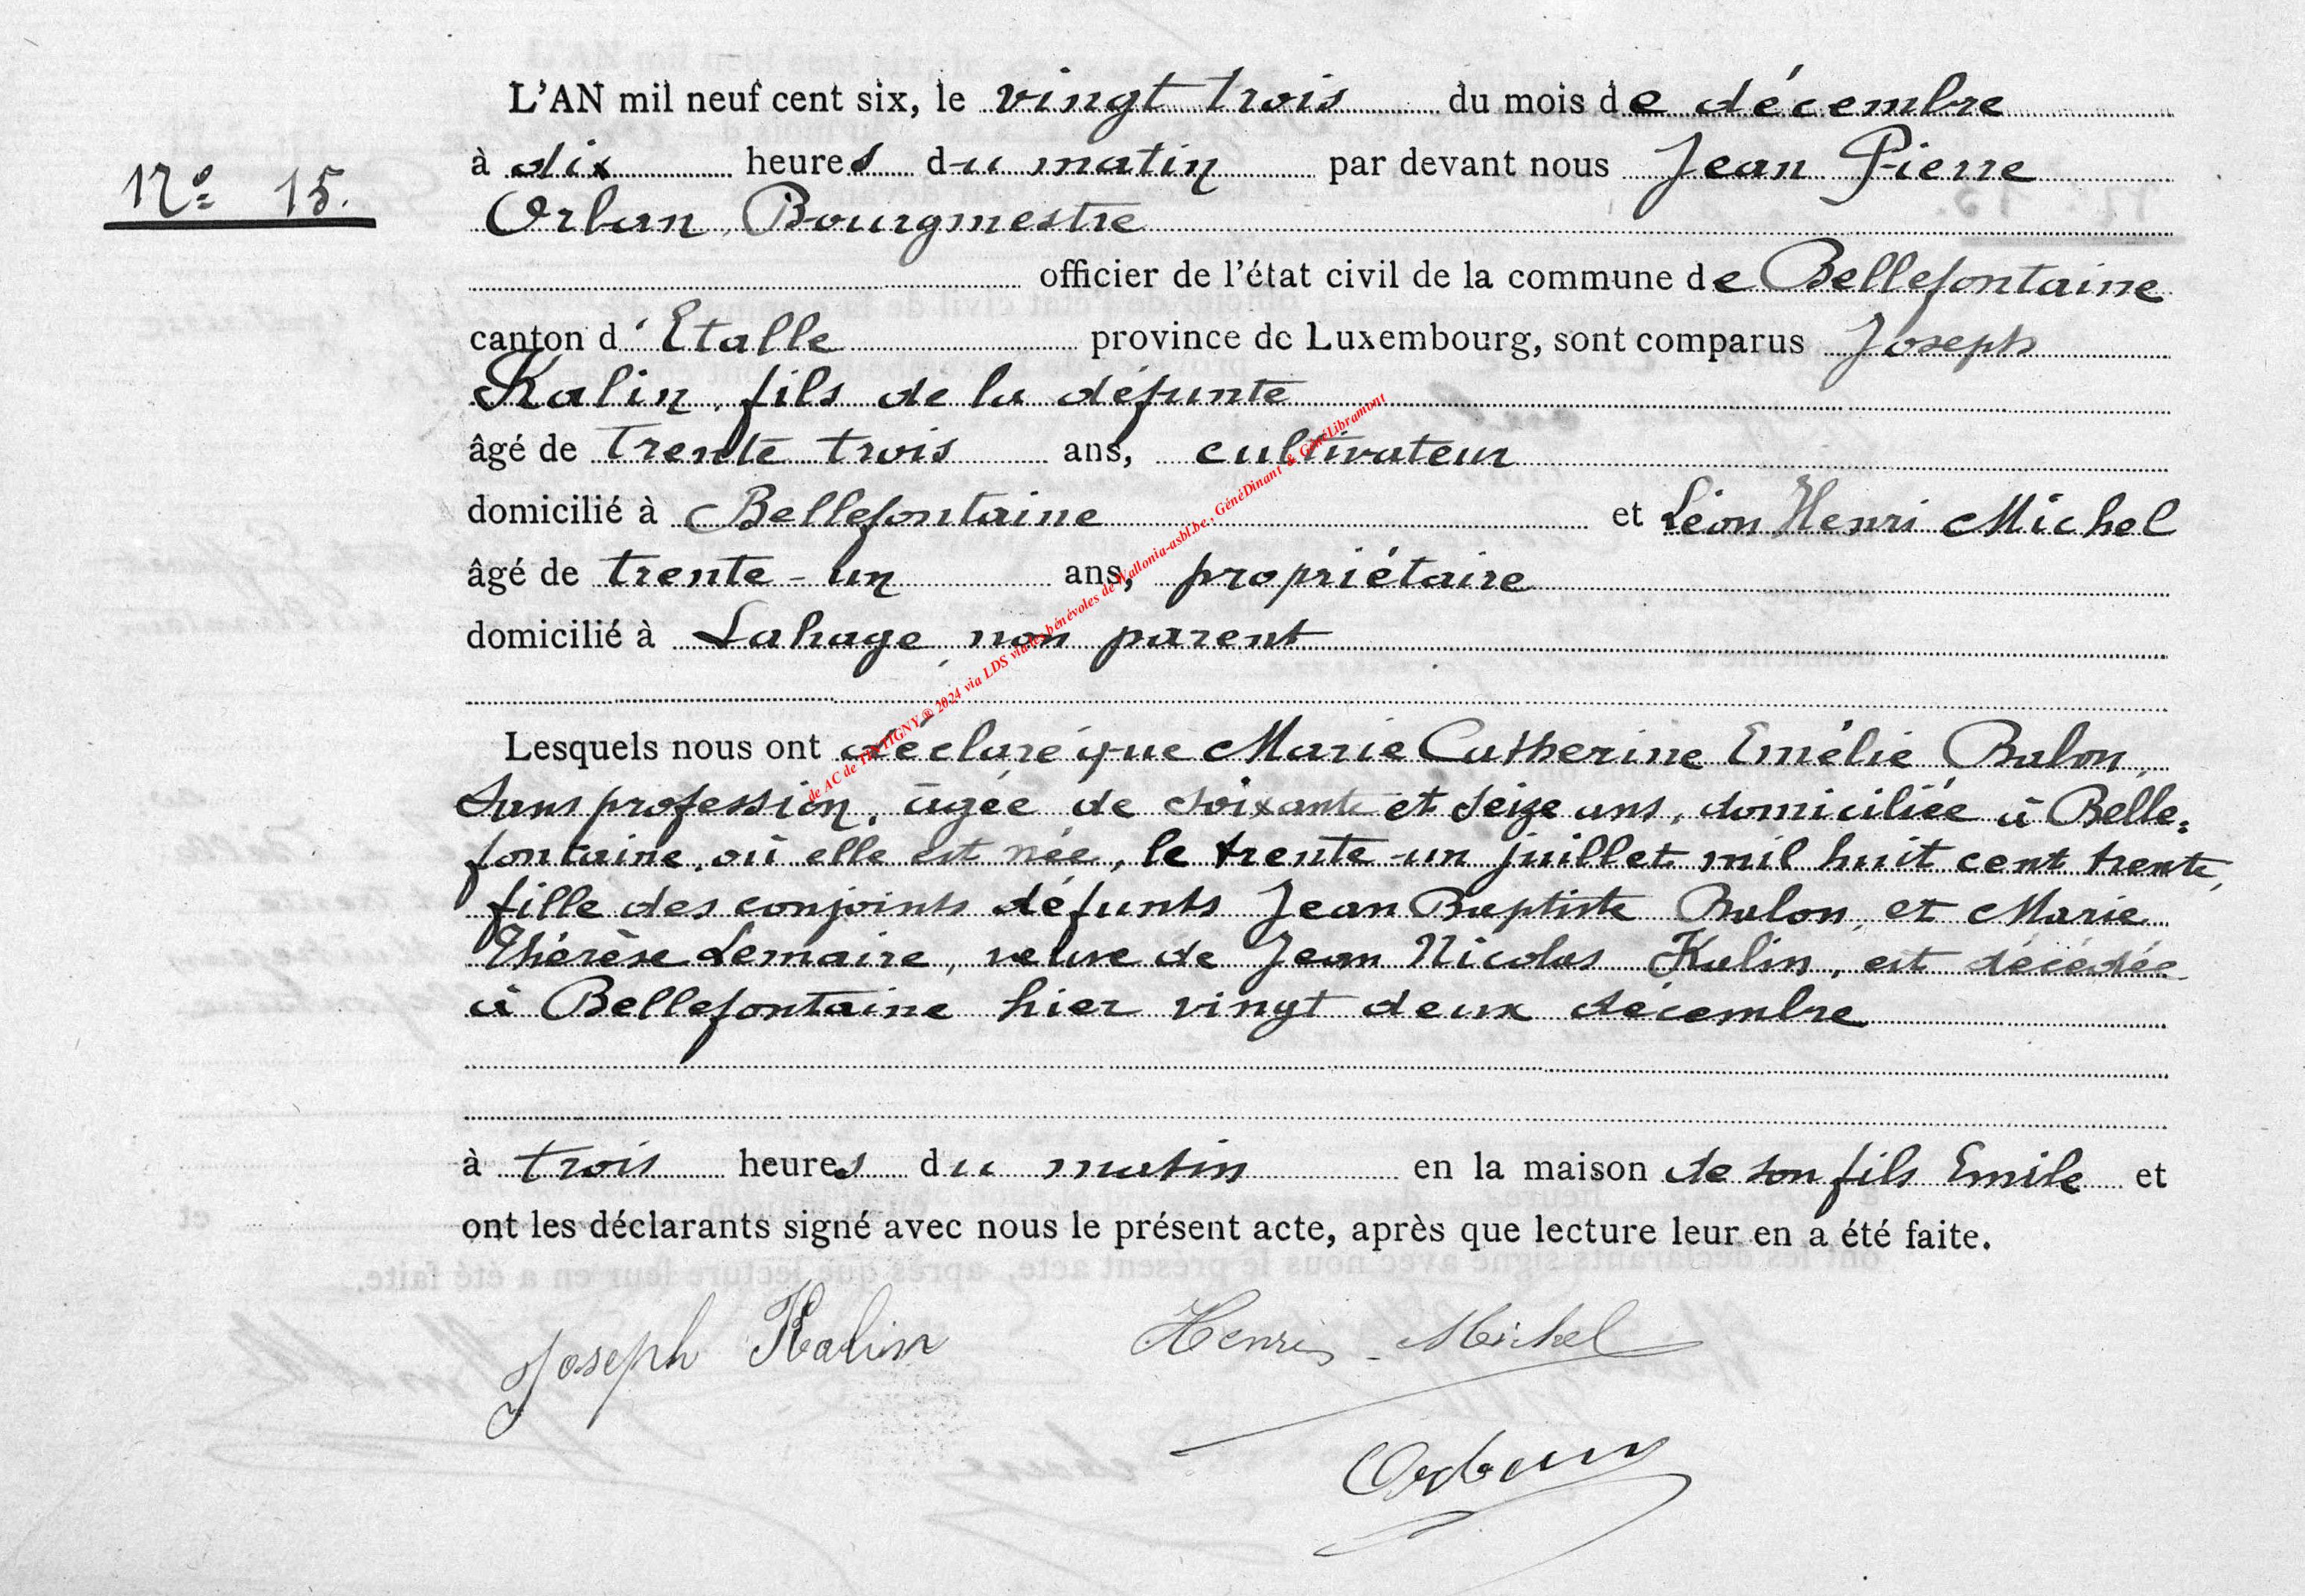 L'AN mil neuf cent six, le vingt trois du mois de décembre
N° 15.
à dix heures du matin par devant nous Jean Pierre
Orban, Bourgmestre
officier de l'état civil de la commune de Bellefontaine
canton d'Etalle province de Luxembourg, sont comparus Joseph
Kalin, fils de la défunte
âgé de trente trois ans, cultivateur
domicilié à Bellefontaine et Léon Henri Michel
âgé de trente-un ans, propriétaire
domicilié à Lahage, non parent
Lesquels nous ont déclaré que Marie Catherine Emélie Balon,
sans profession, âgée de soixante et seize ans, domiciliée à Belle=
fontaine, où elle est née, le trente-un juillet mil huit cent trente,
fille des conjoints défunts Jean Baptiste Balon, et Marie
Thérèse Lemaire, veuve de Jean Nicolas Kalin, est décédée
à Bellefontaine hier vingt deux décembre
à trois heures du matin en la maison de son fils Emile et
ont les déclarants signé avec nous le présent acte, après que lecture leur en a été faite.
Joseph Kalin Henri Michel
Orban
de AC de TINTIGNY ® 2024 via LDS via les bénévoles de Wallonia-asbl.be, GénéDinant & GénéLibramont